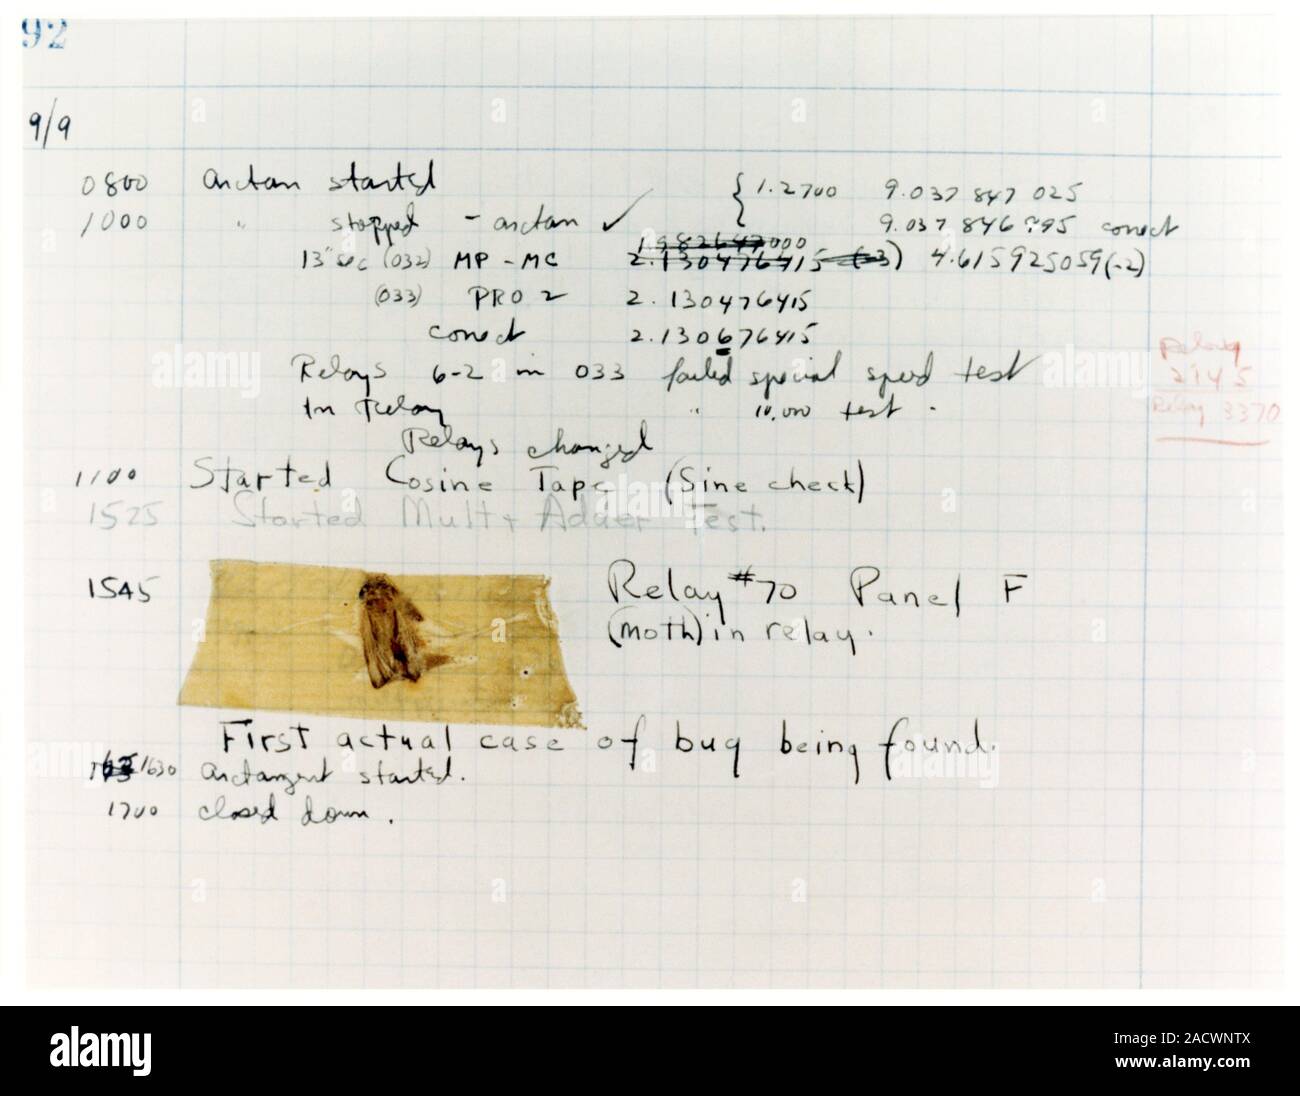 92
9/9
0800 arctan started { 1.2700 9.037 847 025
1000 " stopped - arctan ✓ 9.037 846 995 correct
1.982647000
13"sec (032) MP - MC 2.130476415 (-3) 4.615925059(-2)
(033) PRO 2 2.130476415
correct 2.130676415
Relays 6-2 in 033 failed special speed test
In Relay " 10,000 test.
Relays changed
Relay
2145
Relay 3370
1100 Started Cosine Tape (Sine check)
1525 Started Mult+Adder Test.
1545 Relay #70 Panel F
(moth) in relay.
First actual case of bug being found.
1630 arctangent started.
1700 closed down.
a alamy
alamy
Image ID: 2ACWNTX
www.alamy.com